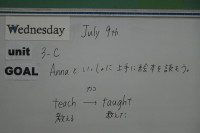 Wednesday July 9th
unit 3-C
GOAL Annaといっしょに上手に絵本を読もう。
teach → taught
教える 教えた